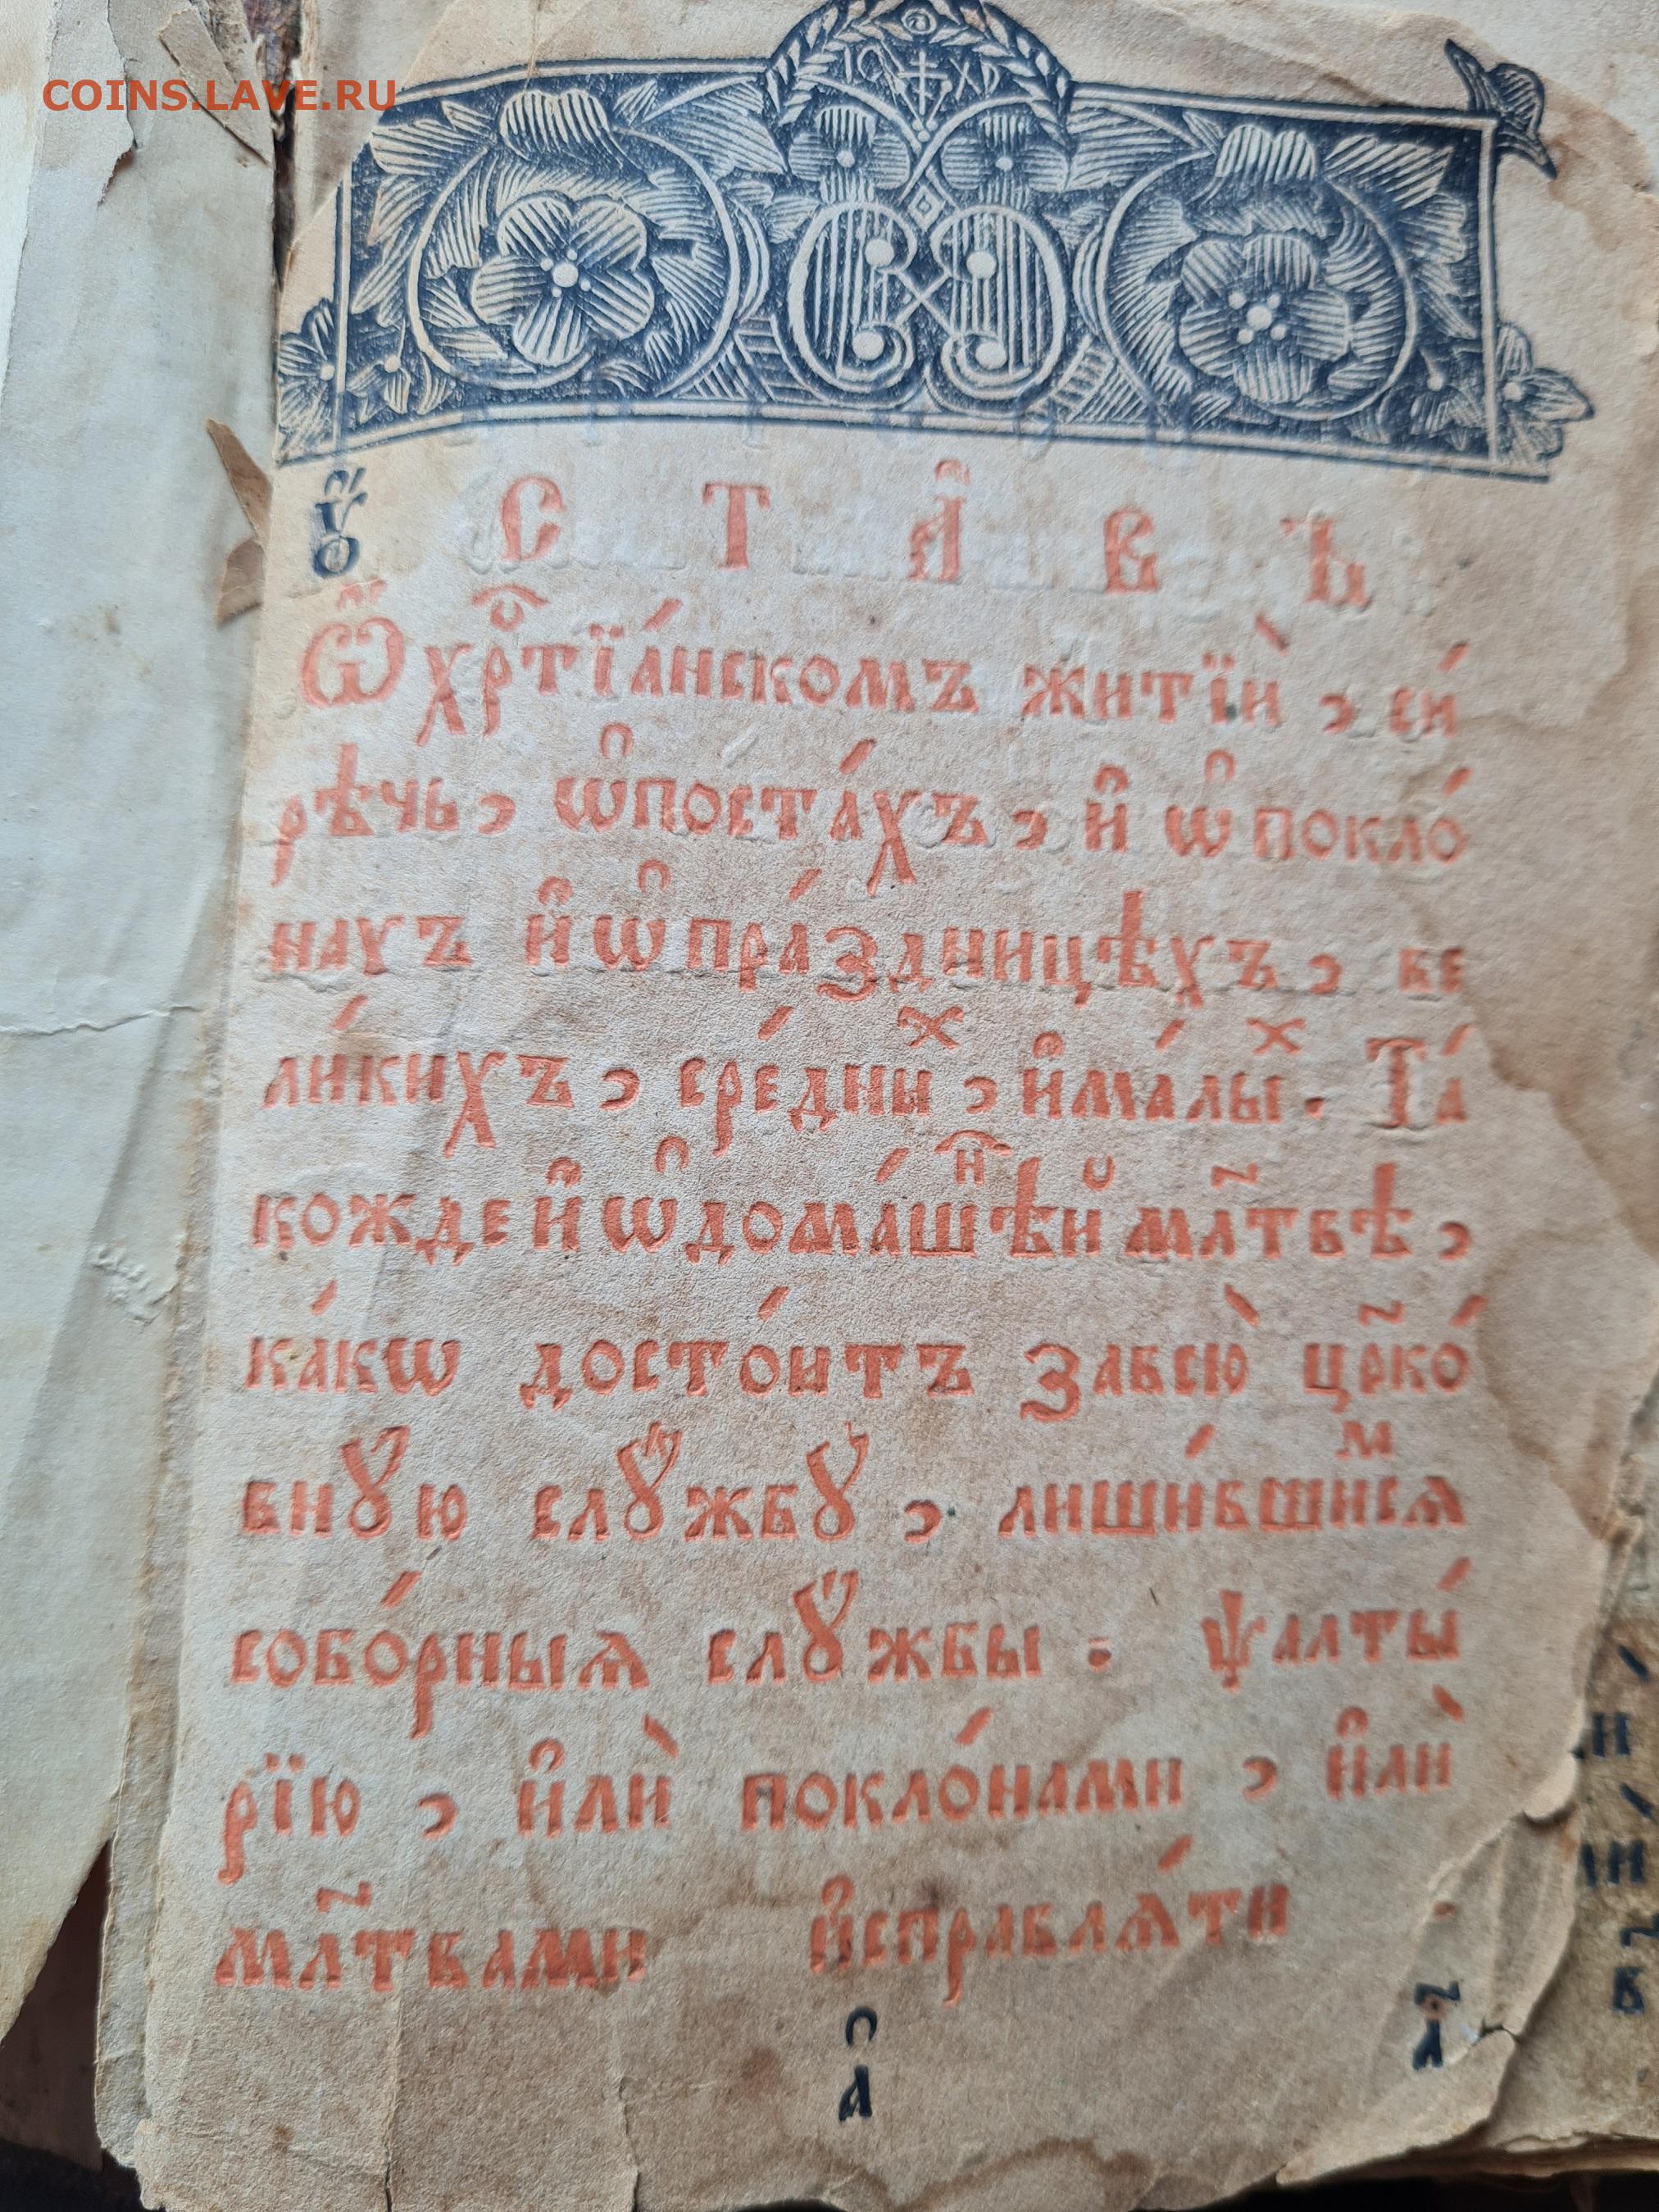 COINS.LAVE.RU
І҆С ХР
Ѹ҆ С Т А҆ В Ъ
Ѿ хрⷭ҇тїа́нскомъ житїѝ , си́
рѣчь , ѡ҆ поста́хъ , и҆ ѡ҆ покло́
нахъ и҆ ѡ҆ пра́здницѣхъ , ве
ли́кихъ , сре́дниⷯ , и҆ ма́лыⷯ . Та́
кожде и҆ ѡ҆ дома́шⷩ҇ѣй мл҃твѣ ,
ка́кѡ досто́итъ за всю̀ цр҃ко́
вную слꙋжбꙋ , лиши́вшимсѧ
собо́рныѧ слꙋжбы . ѱалты́
рїю , и҆лѝ покло́нами , и҆лѝ
мл҃твами и҆справлѧ́ти
а҃